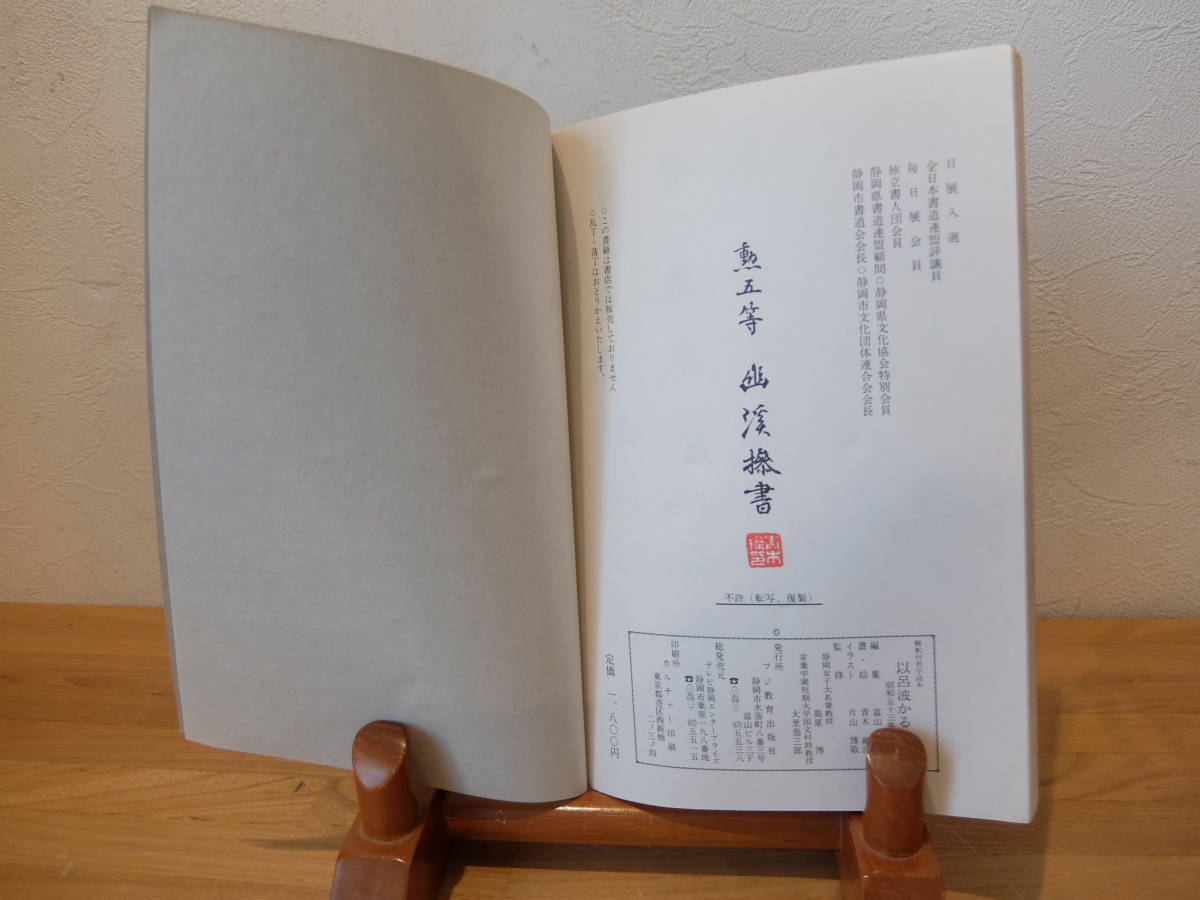 日展入選
全日本書道連盟評議員
毎日展会員
独立書人団会員
静岡県書道連盟顧問○静岡県文化協会特別会員
静岡市書道会会長○静岡市文化団体連合会会長
勲五等 幽溪搽書
不許(転写、復製)
解釈付習字読本
以呂波かる
昭和五十三年
編集 富山
書・絵 青木
イラスト 片山博敬
監修
静岡女子大名誉教授
高原博
常葉学園短期大学国文科助教授
大里恭三郎
©
発行所 フジ教育出版社
静岡市水落町八番三号
富山ビル三F
総発売元
テレビ静岡エンタープライズ
静岡市栗原一九八番地
印刷所
カルチャー印刷
東京都港区西新橋
二ノ三ノ四
定価 一、八〇〇円
○この書籍は書店では販売しておりません
○乱丁・落丁はおとりかえいたします。